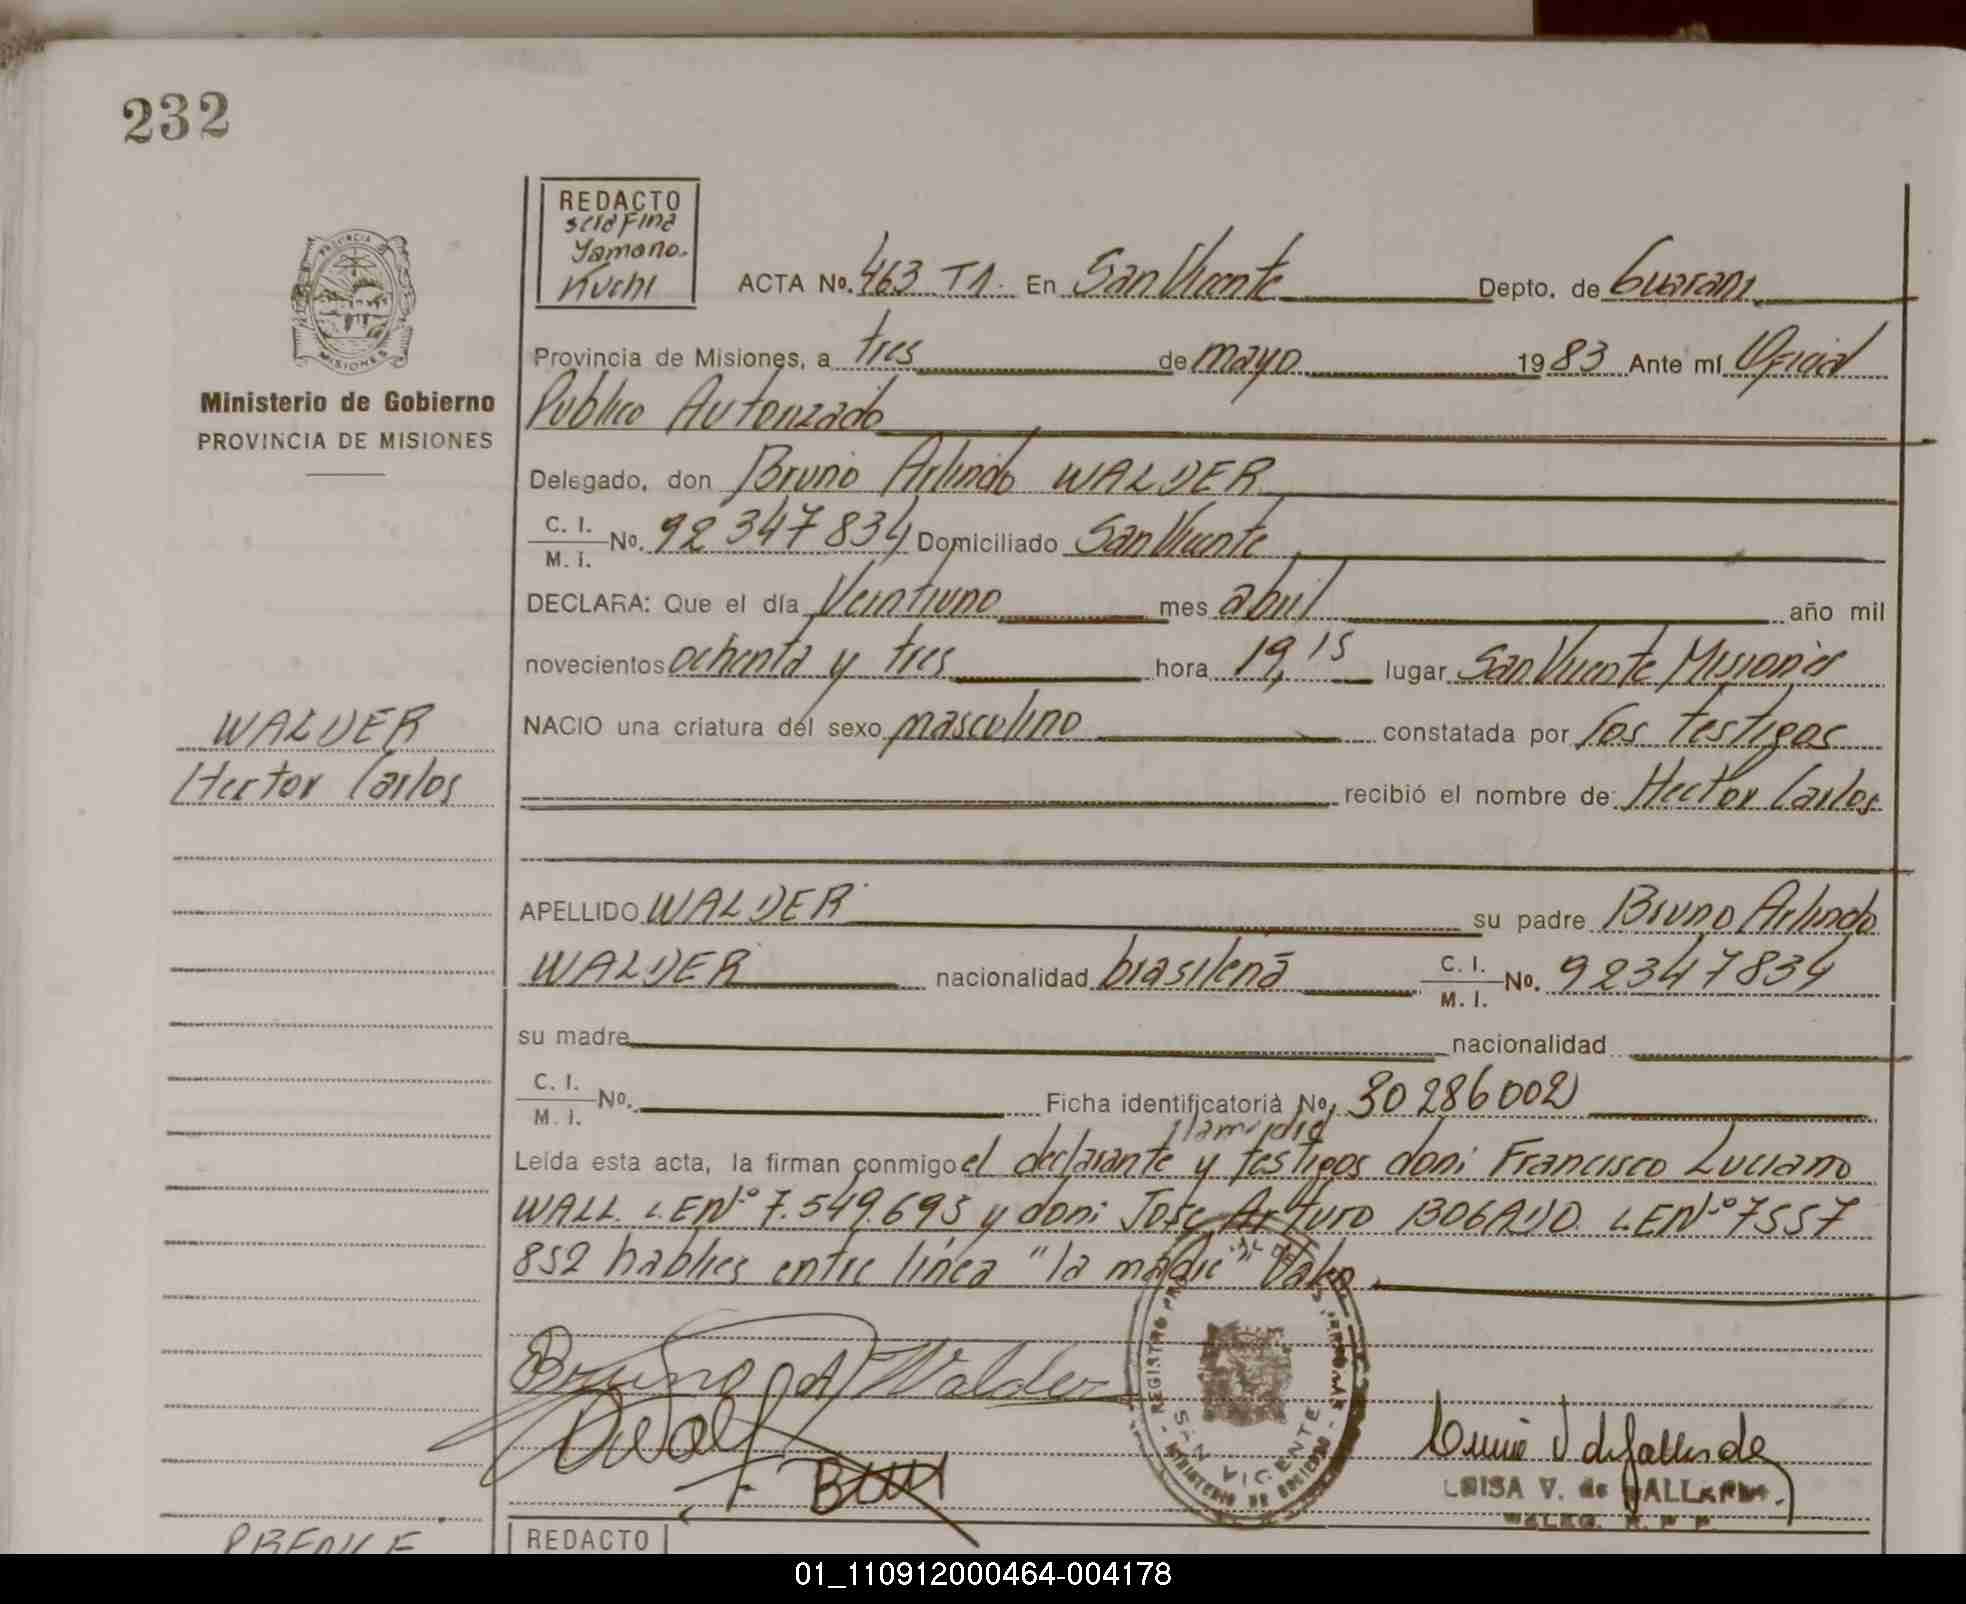 232
REDACTO
Yamono.
Kuchl
PROVINCIA
MISIONES
Ministerio de Gobierno
PROVINCIA DE MISIONES
ACTA No. 463 T1. En San Vicente Depto. de Guarani
Provincia de Misiones, a tres de mayo 1983 Ante mí Oficial
Publico Autorizado
Delegado, don Bruno Arlindo WALDER
C. I. M. I. No. 92 347 834 Domiciliado San Vicente
DECLARA: Que el día Veintiuno mes abril año mil
novecientos ochenta y tres hora 19,15 lugar San Vicente Misiones
NACIO una criatura del sexo masculino constatada por los testigos
recibió el nombre de: Hector Carlos
WALDER
Hector Carlos
APELLIDO WALDER su padre Bruno Arlindo
WALDER nacionalidad brasileña C. I. M. I. No. 92347834
su madre nacionalidad
C. I. M. I. No. Ficha identificatoria No. 30286002
Leída esta acta, la firman conmigo el declarante y testigos don: Francisco Luciano
WALL L.E.Nº 7.549.693 y don: Jose Arturo BOGADO. L.E.Nº 7557
852 habiles entre línea "la madre" Vale.
Bruno A Walder
REGISTRO
SAN VICENTE
MINISTERIO DE
LUISA V. de GALLARDO
REDACTO
01_110912000464-004178